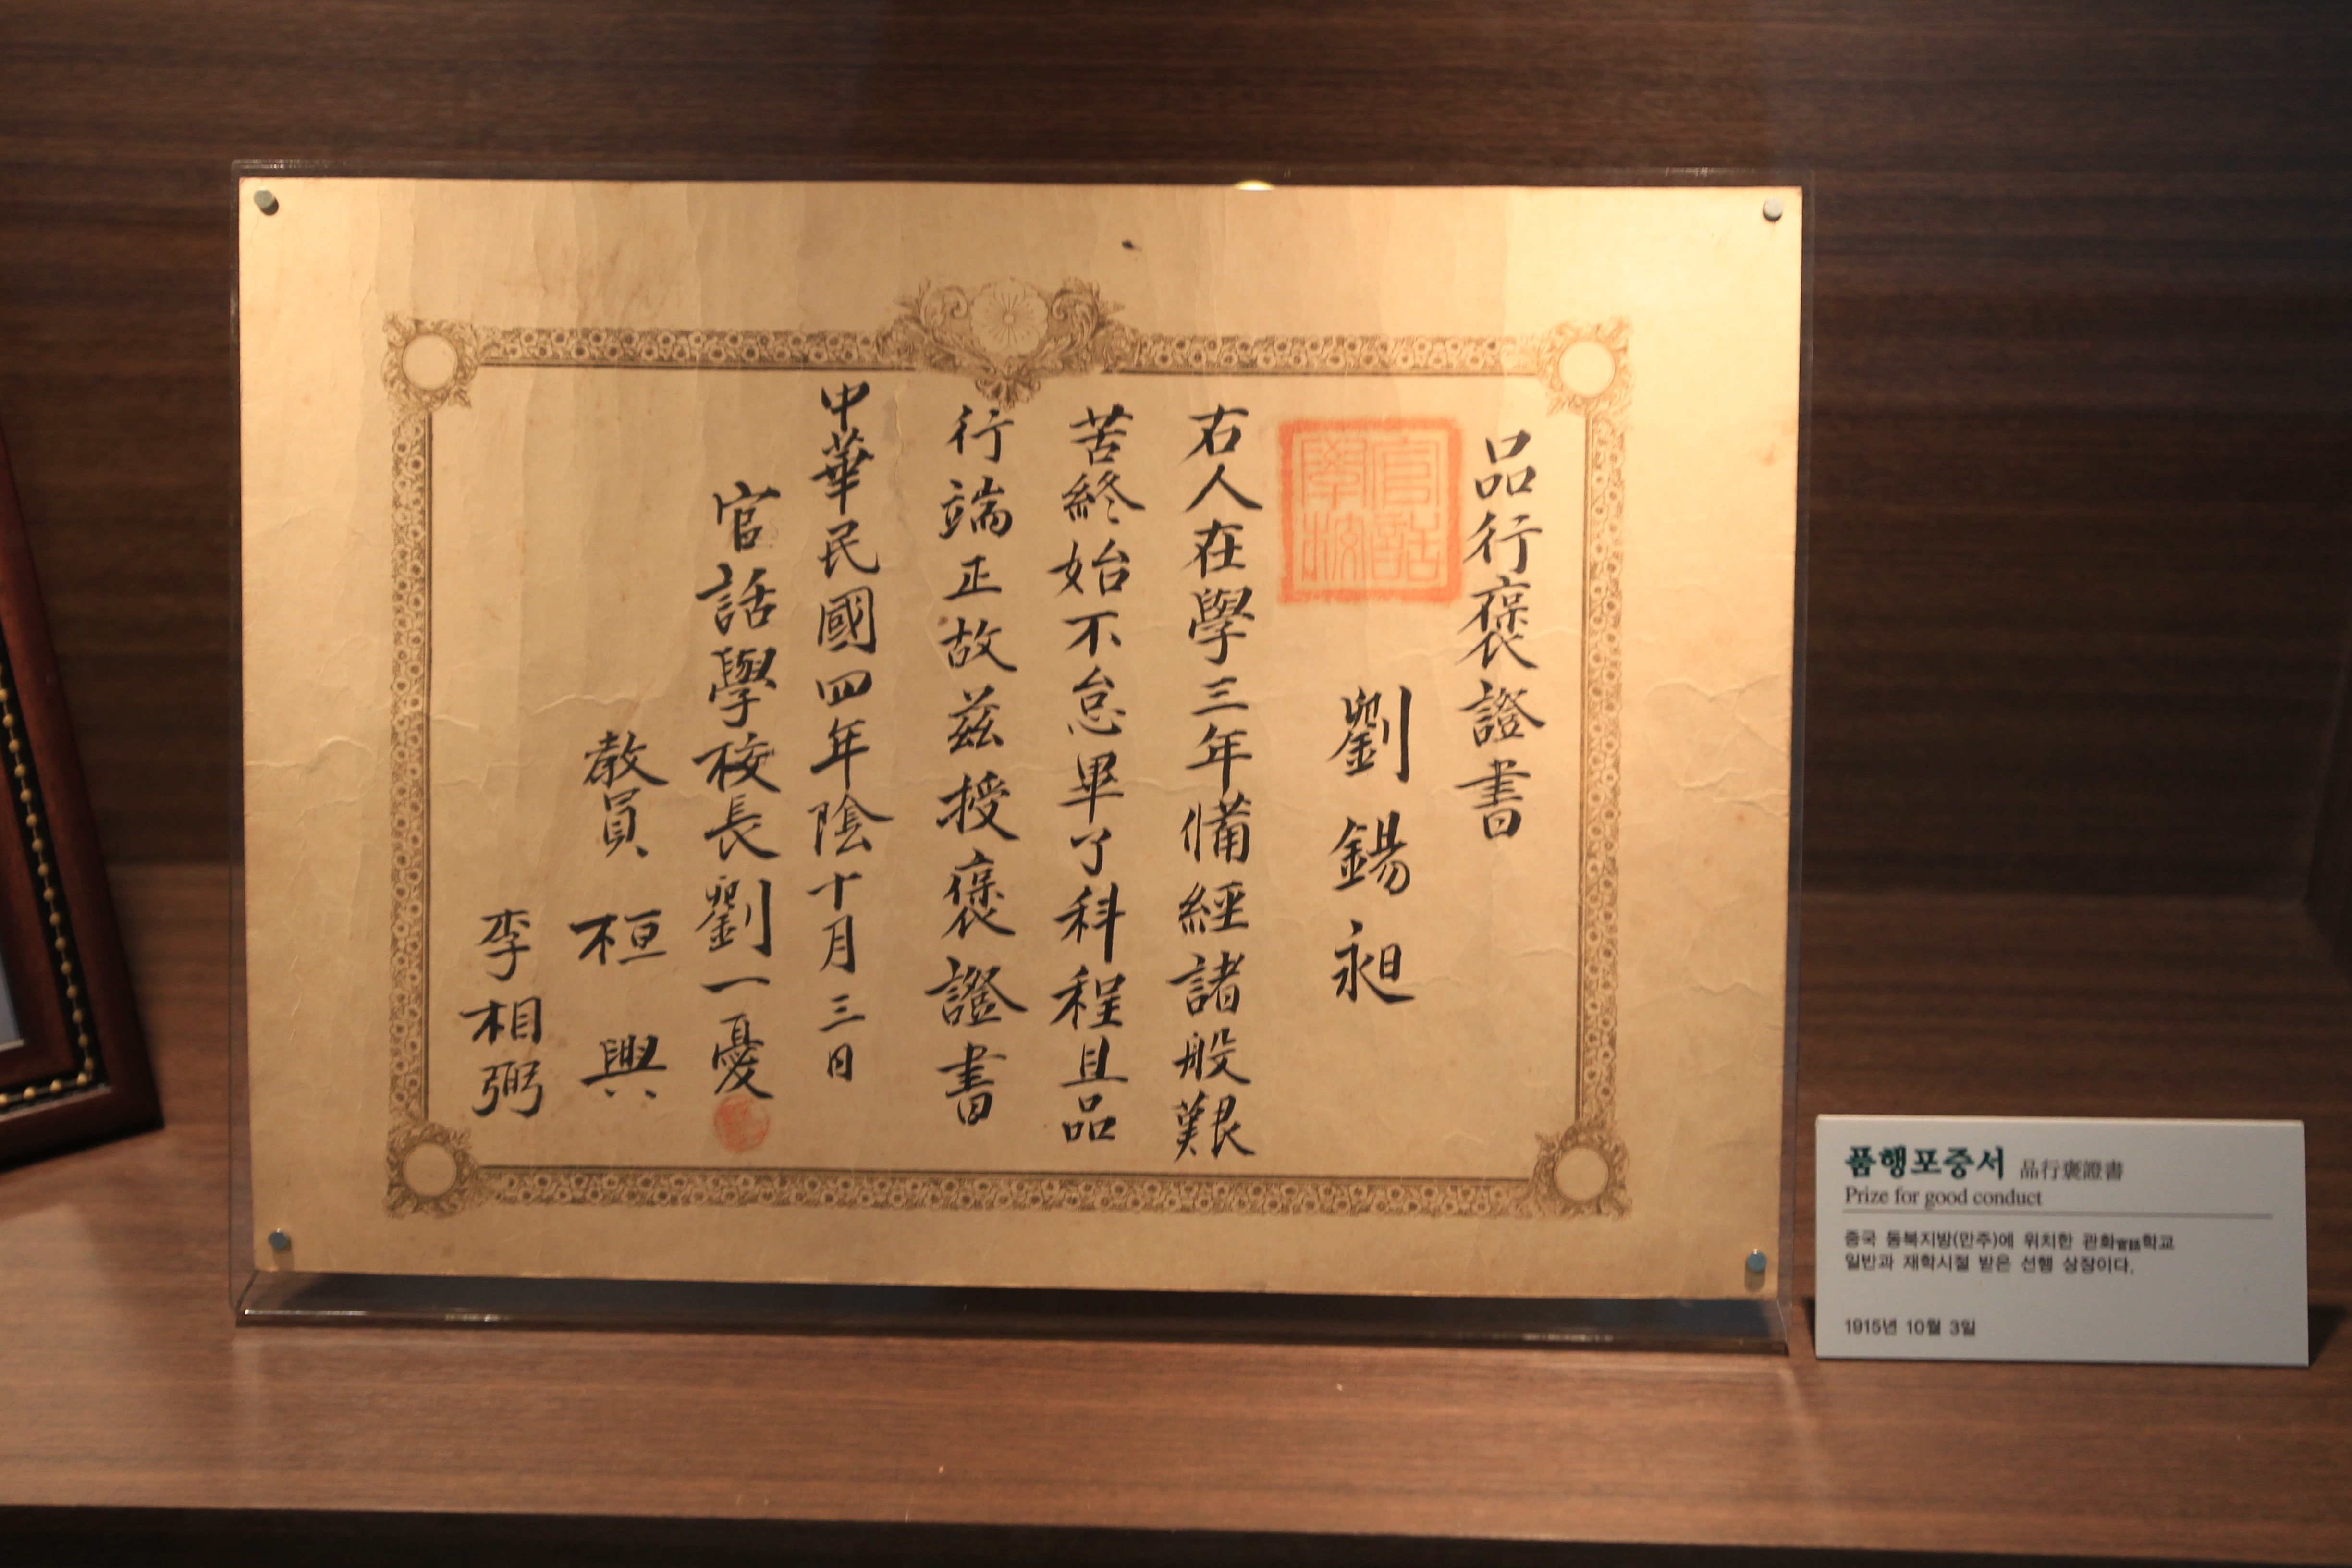 品行褒證書
官話
學校
劉錫昶
右人在學三年備經諸般艱
苦終始不怠畢了科程且品
行端正故茲授褒證書
中華民國四年陰十月三日
官話學校長劉一憂
教員 桓興
李相弼
품행포증서 品行褒證書
Prize for good conduct
중국 동북지방(만주)에 위치한 관화官話학교
일반과 재학시절 받은 선행 상장이다.
1915년 10월 3일